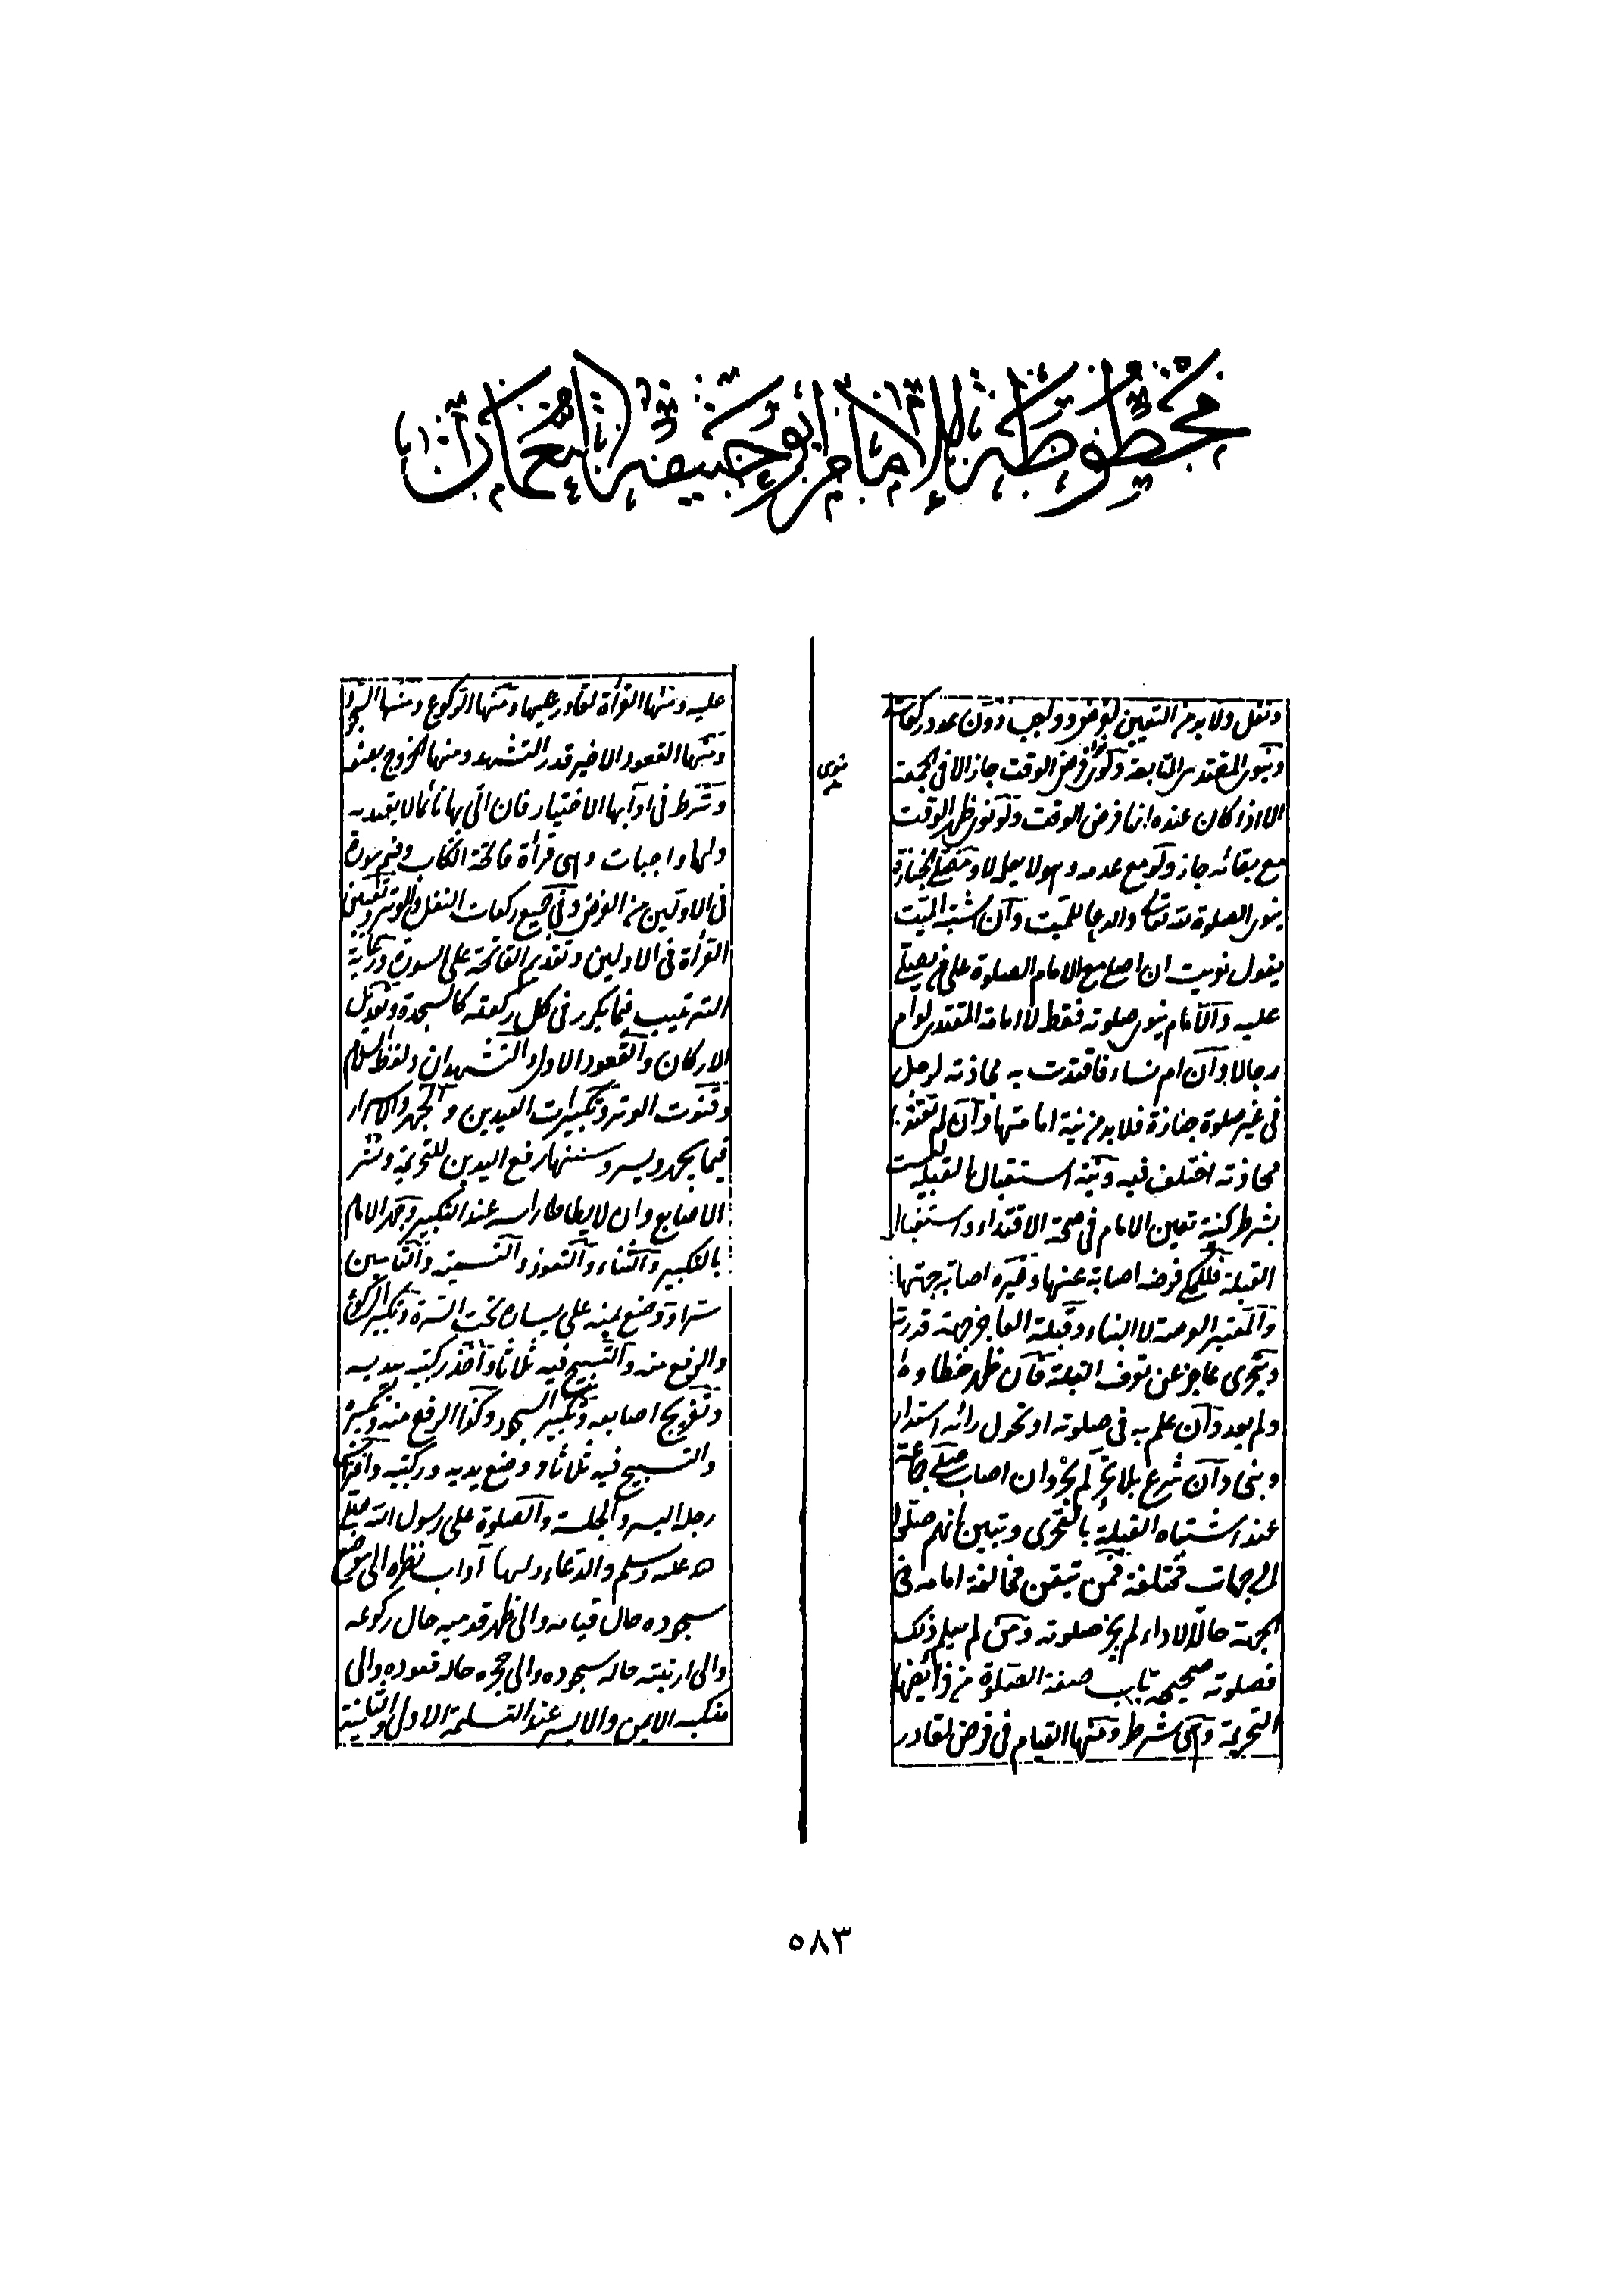 مخطوطة للإمام أبو حنيفة النعمان
ونفل ولا بد من التعيين لفرض وواجب دون عدد ركعات
وينوى المقتدى المتابعة ولو نوى فرض الوقت جاز الا فى الجمعة
الا اذا كان عنده انها فرض الوقت ولو نوى ظهر الوقت
مع بقائه جاز ولو مع عدمه وهو لا يعلمه لا ومصلى الجنازة
ينوى الصلوة لله تعالى والدعا للميت وان اشتبه الميت
يقول نويت ان اصلى مع الامام الصلوة على من يصلى
عليه والامام ينوى صلوته فقط لا امامة المقتدى لو ام
رجالا وان ام نساء فاقتدت به محاذته لرجل
فى غير صلوة جنازة فلا بد من نية امامتها وان لم تقتد
محاذته اختلف فيه ونية استقبال القبلة ليست
بشرط كنية تعيين الامام فى صحة الاقتداء واستقبال
القبلة فللمكى فرضه اصابة عينها وغيره اصابة جهتها
والمعتبر العرصة لا البناء وقبلة العاجز جهة قدرته
ويتحرى عاجز عن تعرف القبلة فان ظهر خطاوه
لم يعد وان علم به فى صلوته او تحول رائه استدار
وبنى وان شرع بلا تحر لم يجز وان اصاب صلى جماعة
عند اشتباه القبلة بالتحرى وتبين انهم صلوا
الى جهات مختلفة فمن تيقن مخالفة امامه فى
الجهة حالة الاداء لم يجز صلوته ومن لم يعلم ذلك
فصلوته صحيحة باب صفة الصلوة من فرائضها
التحريمة وهى شرط ومنها القيام فى فرض لقادر
نوى
عليه ومنها القرأة لقادر عليها ومنها الركوع ومنها السجود
ومنها القعود الاخير قدر التشهد ومنها الخروج بصنعه
وشرط فى ادآئها الاختيار فان اتى بها نائما لا يعتد به
ولها واجبات وهى قرأة فاتحة الكتاب وضم سورة
فى الاوليين من الفرض وفى جميع ركعات النفل والوتر وتعيين
القرأة فى الاوليين وتقديم الفاتحة على السورة ورعاية
الترتيب فيما يكرر فى كل ركعة كالسجدة وتعديل
الاركان والقعود الاول والتشهدان ولفظ السلام
وقنوت الوتر وتكبيرات العيدين والجهر والاسرار
فيما يجهر ويسر وسننها رفع اليدين للتحريمة ونشر
الاصابع وان لا يطاطا راسه عند التكبير وجهر الامام
بالتكبير والثناء والتعوذ والتسمية والتامين
سرا ووضع يمينه على يساره تحت السرة وتكبير الركوع
والرفع منه والتسبيح فيه ثلاثا واخذ ركبتيه بيديه
وتفريج اصابعه وتكبير السجود وكذا الرفع منه وتكبيره
والتسبيح فيه ثلاثا ووضع يديه وركبتيه وافتراش
رجله اليسرى والجلسة والصلوة على رسول الله صلى
الله عليه وسلم والدعاء ولها آداب نظره الى موضع
سجوده حال قيامه والى ظهر قدميه حال ركوعه
والى ارنبته حالة سجوده والى حجره حالة قعوده والى
منكبه الايمن والايسر عند التسليمة الاولى والثانية
٥٨٣